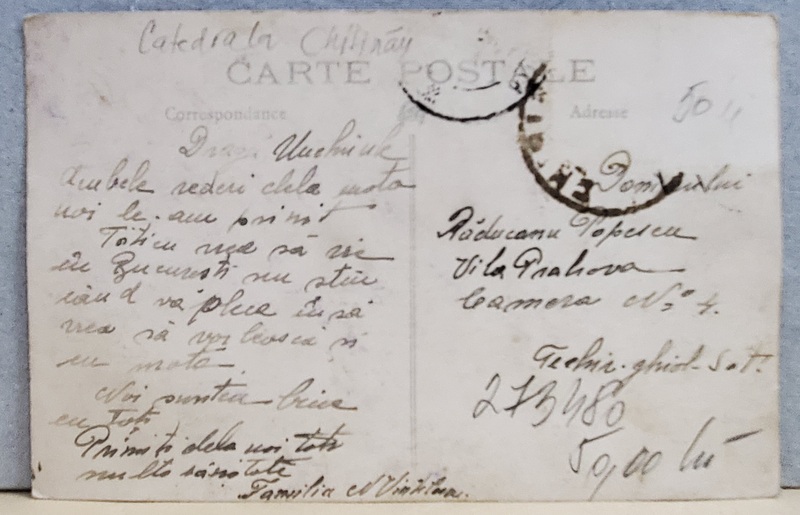 Catedrala Chișinău
CARTE POSTALE
Correspondance
Adresse
50 u
Dragă Unchiule
Ambele vederi dela mata
noi le-am primit
Toticu vrea să vie
în București nu știu
când va pleca însă
vrea să vorbească și
cu mata
Noi suntem bine
cu toți
Primiți dela noi toți
multă sănătate
Familia N
Domnului
Răducanu Popescu
Vila Prahova
Camera No 4.
Techir-ghiol-Sat.
273480
50,00 lei